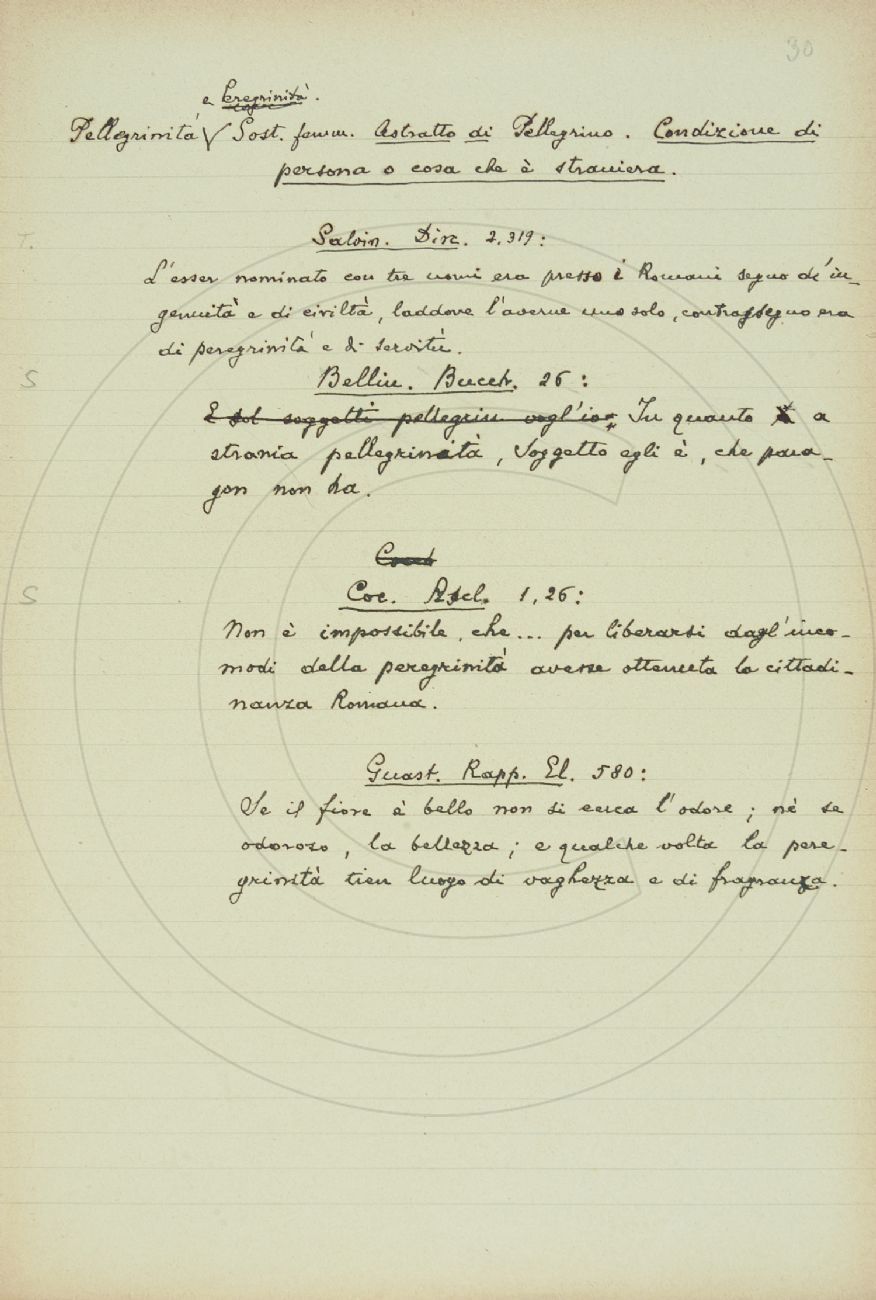 30
e Peregrinità.
Pellegrinità Sost. femm. Astratto di Pellegrino. Condizione di
persona o cosa che è straniera.
T.
Salvin. Disc. 2, 319:
L'esser nominato con tre nomi era presso i Romani segno d'in-
genuità e di civiltà, laddove l'averne uno solo, contrassegno era
di peregrinità e di servitù.
S
Bellin. Bucch. 26:
E sol soggetti pellegrin vogl'io: In quanto a
strania pellegrinità, Soggetto egli è, che para-
gon non ha.
S
Coc. Ascl. 1, 26:
Non è impossibile, che... per liberarsi dagl'inco-
modi della peregrinità avesse ottenuta la cittadi-
nanza Romana.
Guast. Rapp. El. 580:
Se il fiore è bello non si cerca l'odore; nè se
odoroso, la bellezza; e qualche volta la pere-
grinità tien luogo di vaghezza e di fragranza.